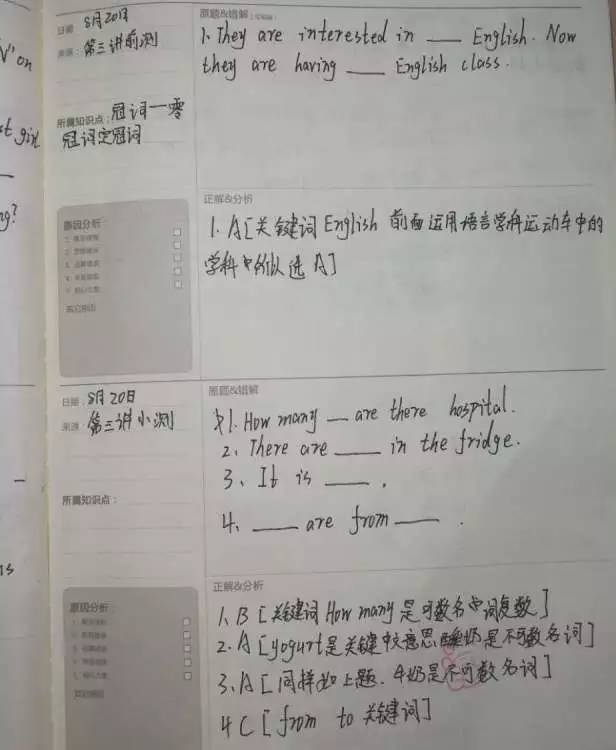 N'on
st girl
ng?
is
日期: 8月20日
来源: 第三讲前测
所属知识点: 冠词一零
冠词定冠词
原题&错解
1. They are interested in ___ English. Now
they are having ___ English class.
原因分析:
正解&分析
1. A[关键词 English 前面运用语言学科运动车中的
学科中所以选 A]
日期: 8月20日
来源: 第三讲小测
所属知识点:
原题&错解
1. How many ___ are there hospital.
2、There are ___ in the fridge.
3、It is ___ .
4、___ are from ___ .
原因分析:
正解&分析
1、B [关键词 How many 是可数名词复数]
2、A [yogurt是关键中文意思酸奶是不可数名词]
3、A [同样如上题. 牛奶是不可数名词]
4 C [from to 关键词]